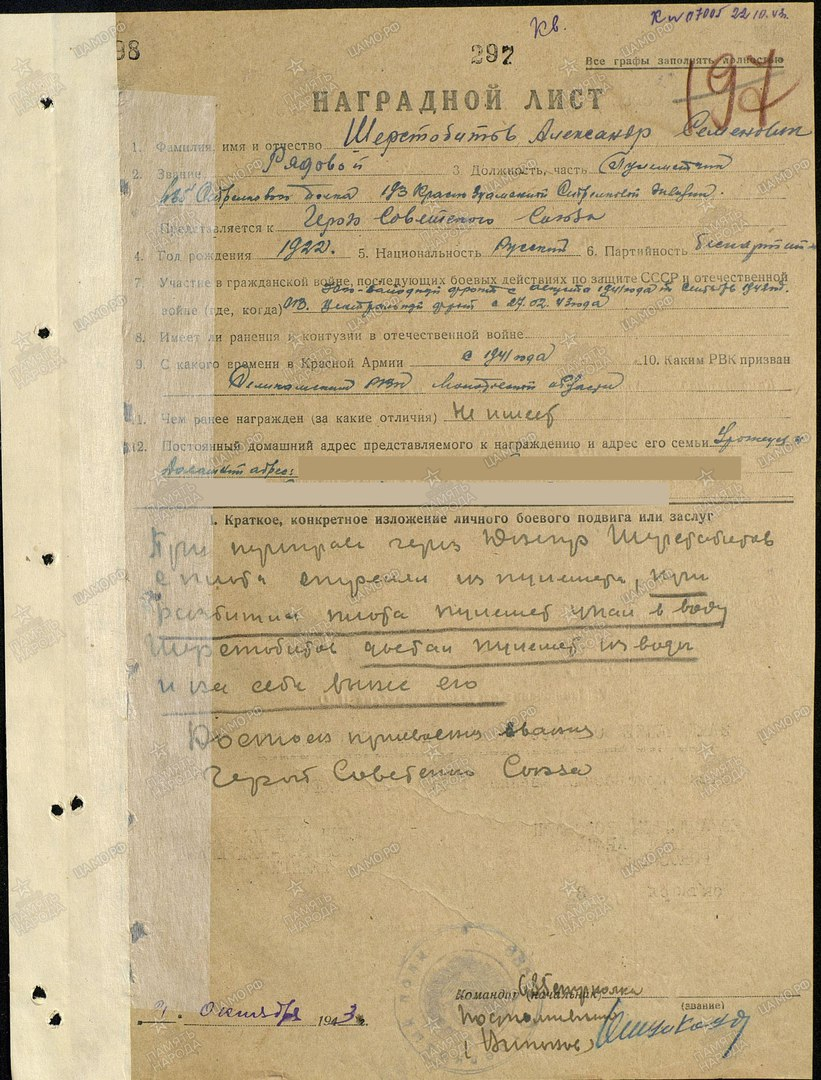 98 297 Кв. 22.10.43.
Все графы заполнять полностью
197
НАГРАДНОЙ ЛИСТ
1. Фамилия, имя и отчество Шерстобитов Александр Семенович
2. Звание Рядовой 3 Должность, часть Пулеметчик
Стрелкового полка 193 Стрелковой дивизии.
Представляется к Герою Советского Союза
4. Год рождения 1922. 5. Национальность Русский 6. Партийность беспартийн
7. Участие в гражданской войне, последующих боевых действиях по защите СССР и отечественной
Западный фронт с августа 1941 года по сентябрь 1942
войне (где, когда) Центральный фронт с 27.02.43 года
8. Имеет ли ранения и контузии в отечественной войне
9. С какого времени в Красной Армии с 1941 года 10. Каким РВК призван
РВК области
11. Чем ранее награжден (за какие отличия) Не имеет
12. Постоянный домашний адрес представляемого к награждению и адрес его семьи
Домашний адрес:
I. Краткое, конкретное изложение личного боевого подвига или заслуг
При переправе через Днепр Шерстобитов
с плота стрелял из пулемета, при
разбитии плота пулемет упал в воду
Шерстобитов достал пулемет из воды
и на себе вынес его
Достоин присвоения звания
Герой Советского Союза
Командир (начальник) полка
(звание)
октября 1943 г.
подполковник